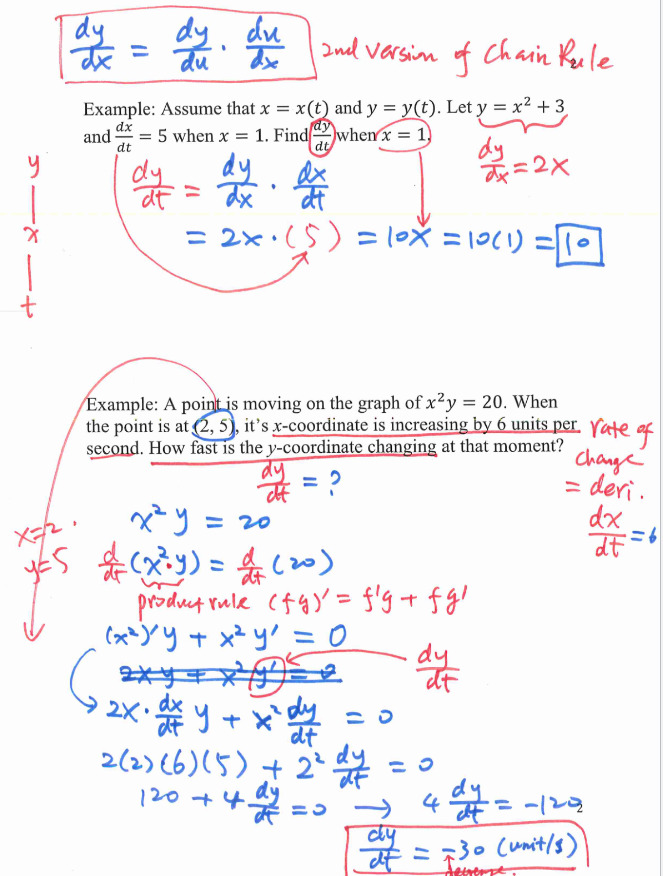 dy/dx = dy/du · du/dx  2nd version of Chain Rule
Example: Assume that x = x(t) and y = y(t). Let y = x² + 3
and dx/dt = 5 when x = 1. Find dy/dt when x = 1.
dy/dx = 2x
y
x
t
dy/dt = dy/dx · dx/dt
= 2x · (5) = 10x = 10(1) = 10
Example: A point is moving on the graph of x²y = 20. When
the point is at (2, 5), it's x-coordinate is increasing by 6 units per
second. How fast is the y-coordinate changing at that moment?
rate of
change
= deri.
dx/dt = 6
dy/dt = ?
x=2
y=5
x² y = 20
d/dt (x²·y) = d/dt (20)
product rule (fg)' = f'g + fg'
(x²)'y + x² y' = 0
2xy + x² y' = 0
dy/dt
2x · dx/dt y + x² dy/dt = 0
2(2)(6)(5) + 2² dy/dt = 0
120 + 4 dy/dt = 0 → 4 dy/dt = -120
2
dy/dt = -30 (unit/s)